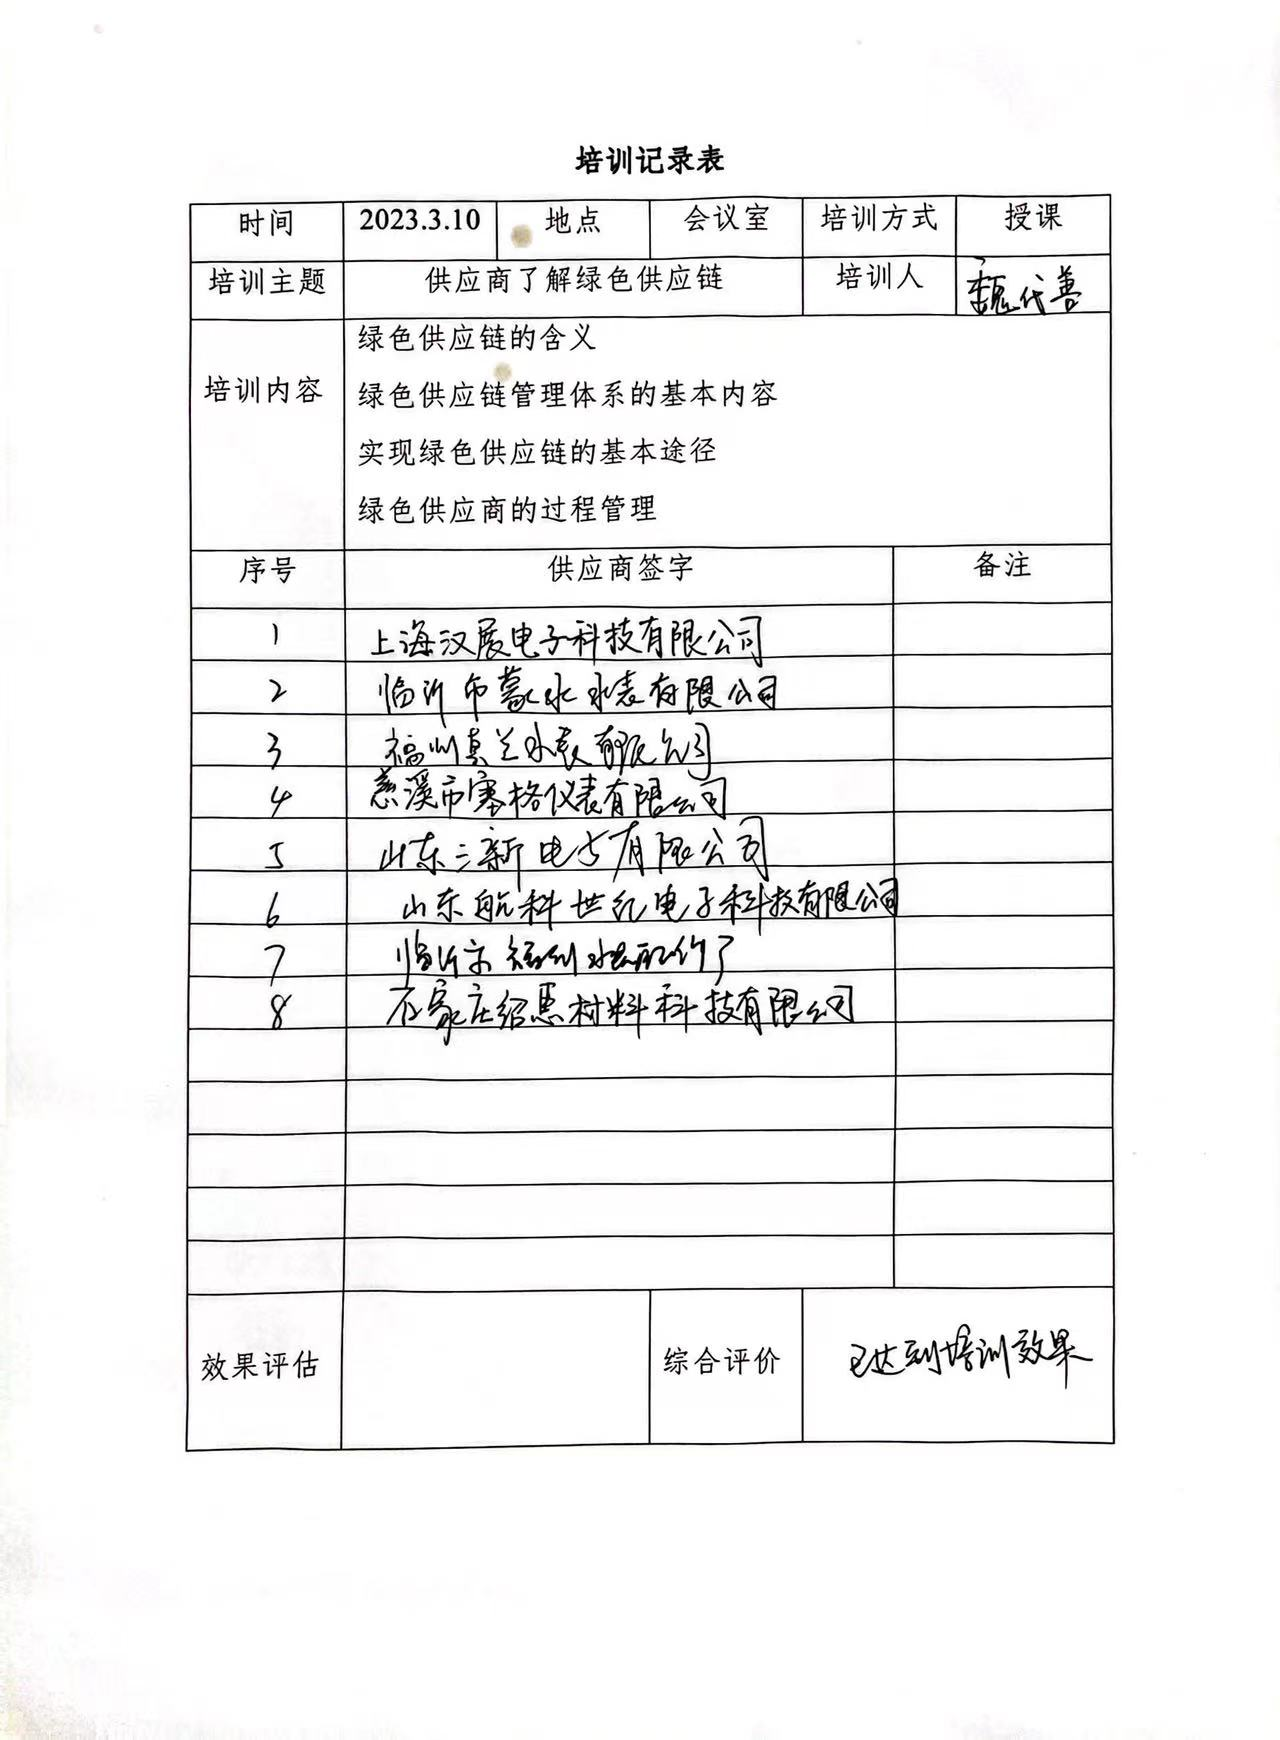 培训记录表
时间 2023.3.10 地点 会议室 培训方式 授课
培训主题 供应商了解绿色供应链 培训人 魏代善
培训内容
绿色供应链的含义
绿色供应链管理体系的基本内容
实现绿色供应链的基本途径
绿色供应商的过程管理
序号 供应商签字 备注
1 上海汉展电子科技有限公司
2 临沂市蒙水水表有限公司
3 福州真兰水表有限公司
4 慈溪市塞格仪表有限公司
5 山东三新电子有限公司
6 山东航科世纪电子科技有限公司
7 临沂市 水表配件厂
8 石家庄绍思材料科技有限公司
效果评估 综合评价 已达到培训效果